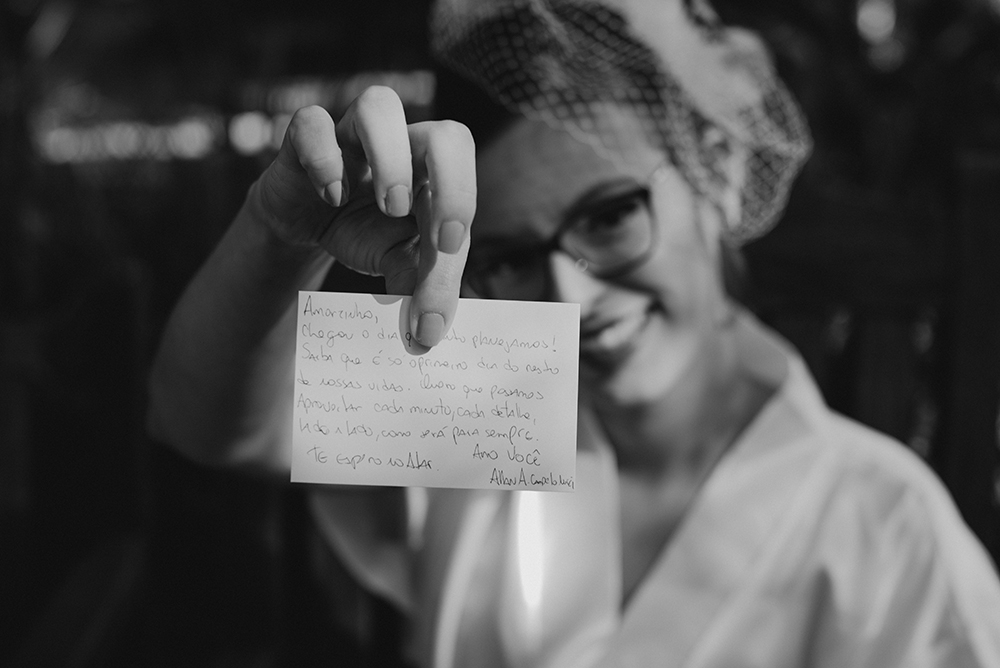 Amorzinho,
Chegou o dia q tanto planejamos!
Saiba que é só o primeiro dia do resto
de nossas vidas. Quero que possamos
Aproveitar cada minuto, cada detalhe,
lado a lado, como será para sempre.
Te espero no Altar. Amo Você
Allan A.